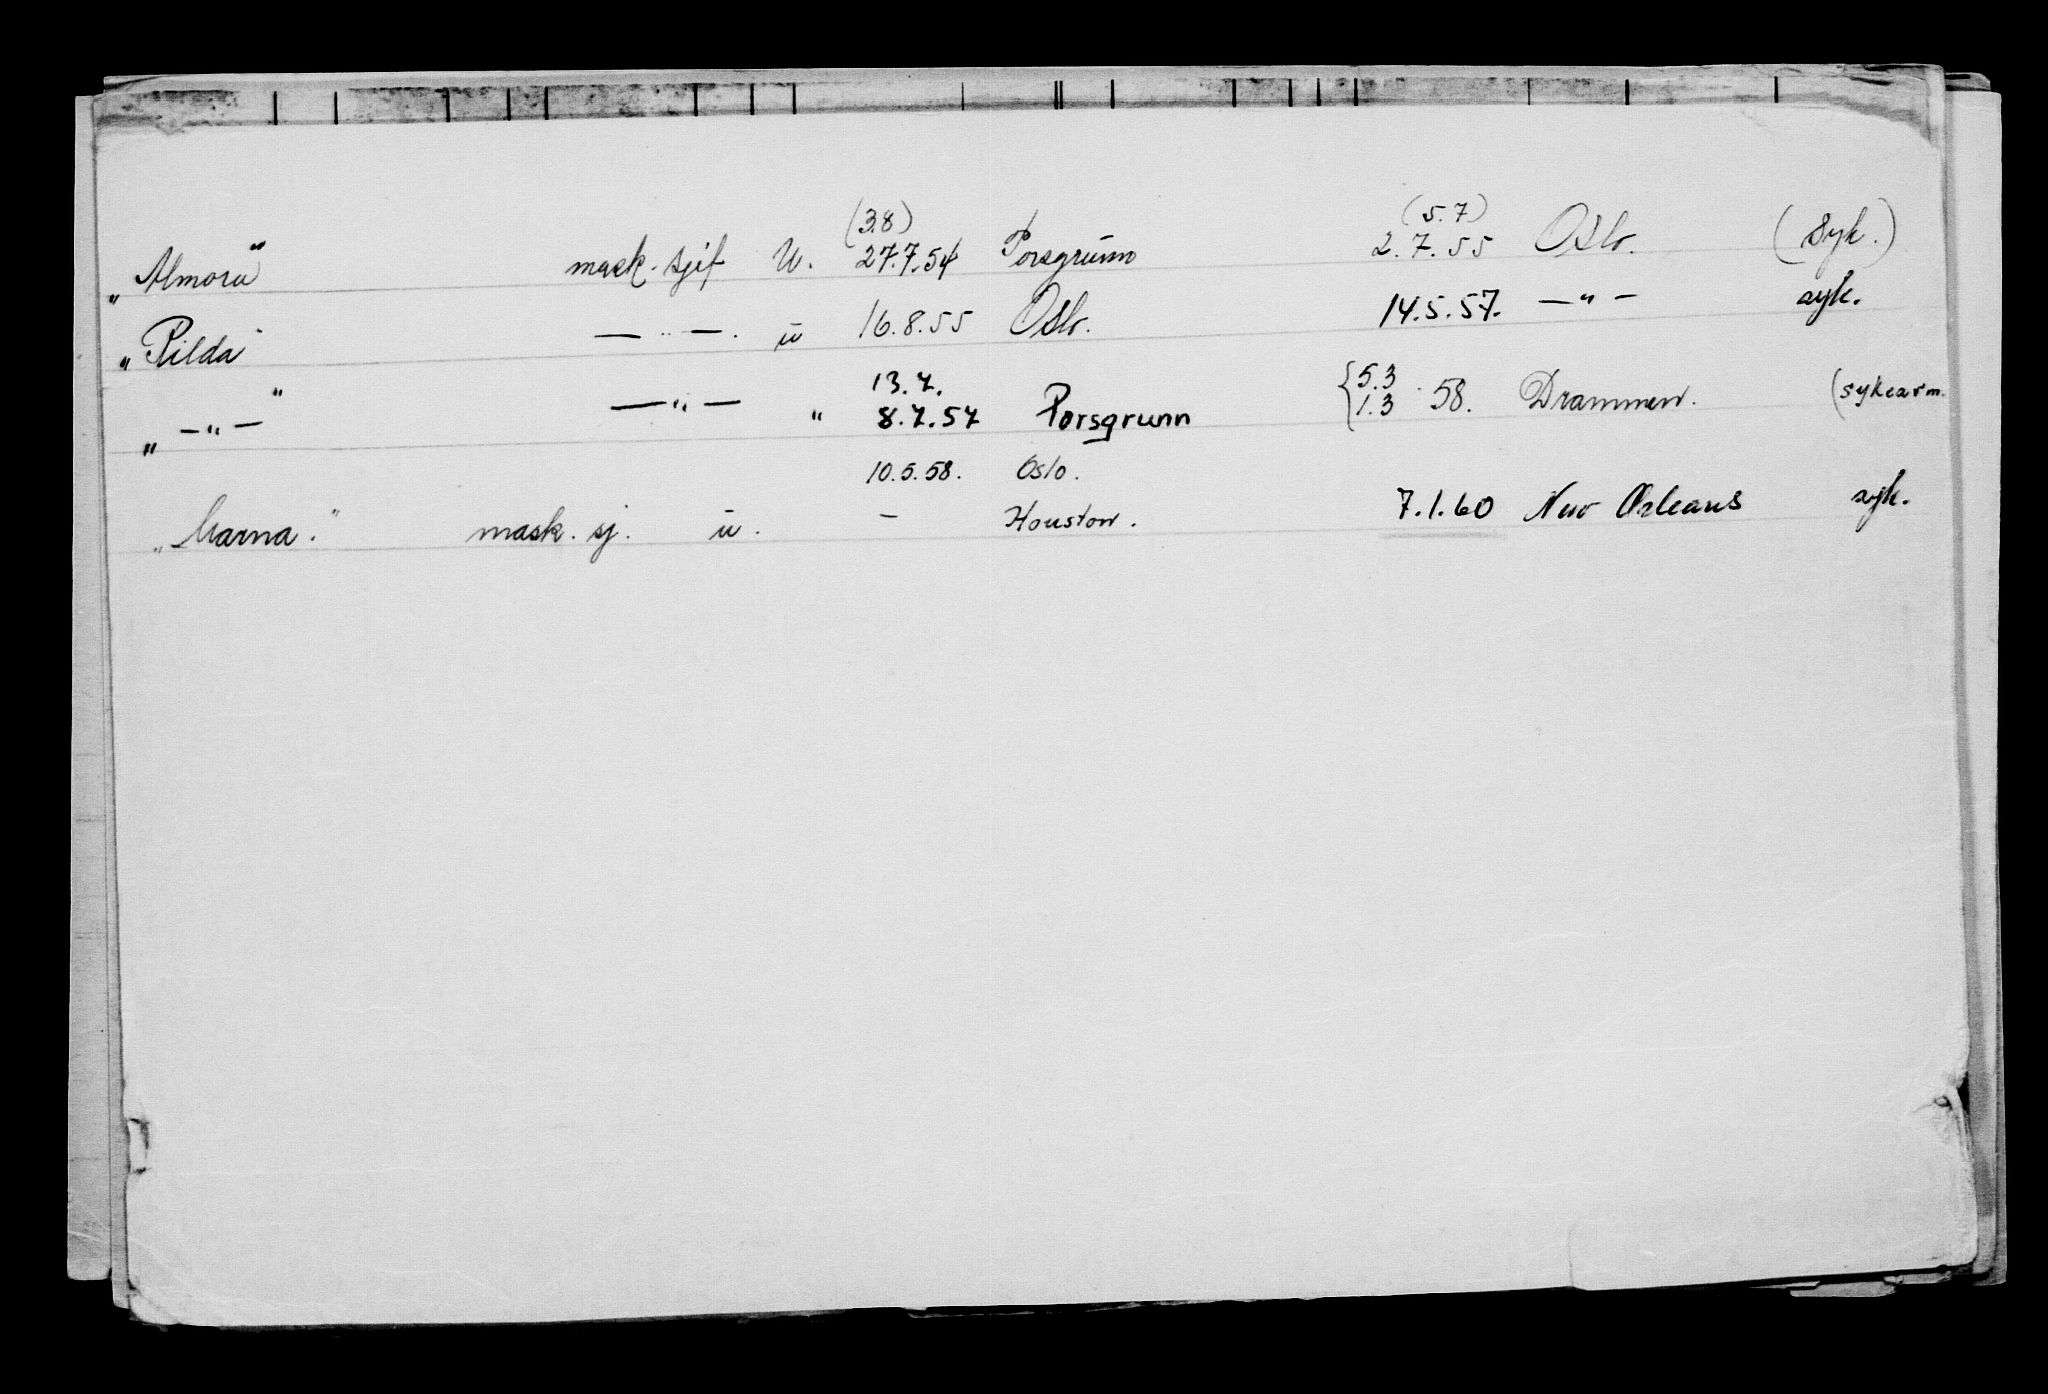 (3.8) (5.7)
"Almora" mask. sjef U. 27.7.54 Porsgrunn 2.7.55 Oslo. (Syk.)
"Pilda" — " —. u 16.8.55 Oslo. 14.5.57. — " — syk.
13.7. {5.3
" — " — " — " — " 8.7.57 Porsgrunn 1.3 58. Drammen. (sykearm.
10.5.58. Oslo.
"Marna." mask. sj. u. — Houston. 7.1.60 New Orleans syk.